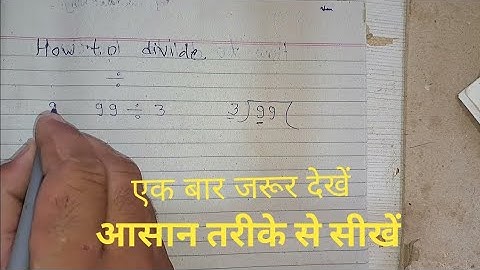 How to divide
÷
9 99 ÷ 3 3)99(
एक बार जरूर देखें
आसान तरीके से सीखें